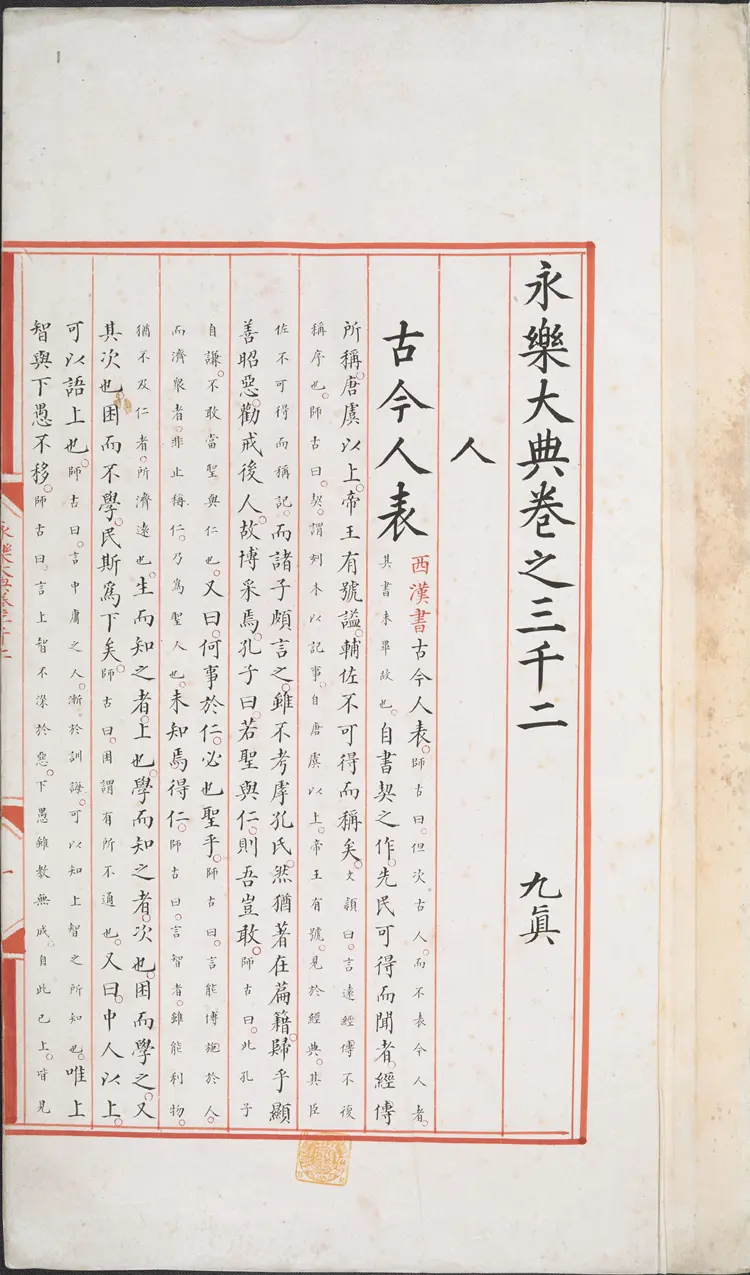 永樂大典卷之三千二　九真
人
古今人表
西漢書古今人表。師古曰。但次古人。而不表今人者。
其書未畢故也。自書契之作。先民可得而聞者。經傳
所稱。唐虞以上。帝王有號謚。輔佐不可得而稱矣。文穎曰。言遠經傳不復
稱序也。師古曰。契。謂刻木以記事。自唐虞以上。帝王有號。見於經典。其臣
佐不可得而稱記。而諸子頗言之。雖不考虖孔氏。然猶著在萹籍。歸乎顯
善昭惡。勸戒後人。故博采焉。孔子曰。若聖與仁。則吾豈敢。師古曰。此孔子
自謙。不敢當聖與仁也。又曰。何事於仁。必也聖乎。師古曰。言能博施於人。
而濟衆者。非止稱仁。乃爲聖人也。未知焉得仁。師古曰。言智者。雖能利物。
猶不及仁者。所濟遠也。生而知之者。上也。學而知之者。次也。困而學之。又
其次也。困而不學。民斯爲下矣。師古曰。困謂有所不通也。又曰。中人以上。
可以語上也。師古曰。言中庸之人。漸於訓誨。可以知上智之所知也。唯上
智與下愚不移。師古曰。言上智不染於惡。下愚雖教無成。自此已上。皆見
永樂大典卷三千二
一